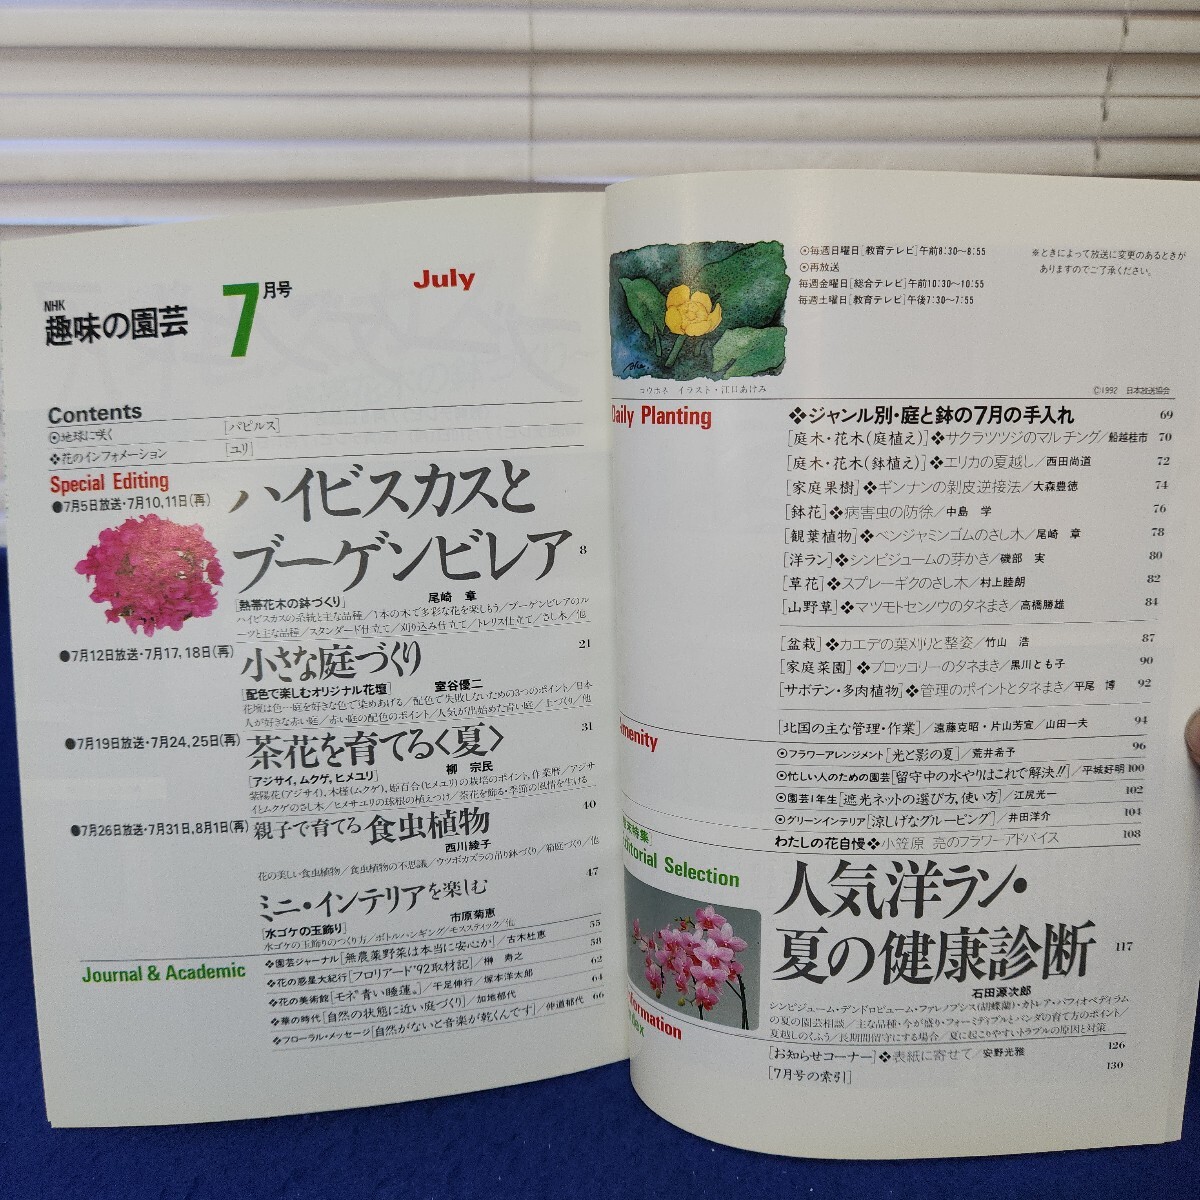 NHK
趣味の園芸
7月号
July
Contents
⦿地球に咲く [パピルス]
❖花のインフォメーション [ユリ]
Special Editing
●7月5日放送・7月10,11日(再)
ハイビスカスと
ブーゲンビレア 8
[熱帯花木の鉢づくり] 尾崎 章
ハイビスカスの系統と主な品種/1本の木で多彩な花を楽しもう/ブーゲンビレアのル
ーツと主な品種/スタンダード仕立て/刈り込み仕立て/トレリス仕立て/さし木/他
●7月12日放送・7月17,18日(再)
小さな庭づくり 21
[配色で楽しむオリジナル花壇] 室谷優二
花壇は色…庭を好きな色で染めあげる/配色で失敗しないための3つのポイント/日本
人が好きな赤い庭/赤い庭の配色のポイント/人気が出始めた青い庭/土づくり/他
●7月19日放送・7月24,25日(再)
茶花を育てる〈夏〉 31
[アジサイ,ムクゲ,ヒメユリ] 柳 宗民
紫陽花(アジサイ),木槿(ムクゲ),姫百合(ヒメユリ)の栽培のポイント,作業暦/アジサ
イとムクゲのさし木/ヒメサユリの球根の植えつけ/茶花を飾る・季節の風情を生ける
●7月26日放送・7月31日,8月1日(再)
親子で育てる 食虫植物 40
西川綾子
花の美しい食虫植物/食虫植物の不思議/ウツボカズラの吊り鉢づくり/箱庭づくり/他
ミニ・インテリアを楽しむ 47
[水ゴケの玉飾り] 市原菊恵
水ゴケの玉飾りのつくり方/ボトルハンギング/モススティック/他
Journal & Academic
❖園芸ジャーナル[無農薬野菜は本当に安心か]/古木杜恵 55
❖花の惑星大紀行[フロリアード'92取材記]/榊 寿之 58
❖花の美術館[モネ“青い睡蓮”]/千足伸行/塚本洋太郎 62
❖華の時代[自然の状態に近い庭づくり]/加地郁代 64
❖フローラル・メッセージ[自然がないと音楽が乾くんです]/仲道郁代 66
⦿毎週日曜日[教育テレビ]午前8:30〜8:55
⦿再放送
毎週金曜日[総合テレビ]午前10:30〜10:55
毎週土曜日[教育テレビ]午後7:30〜7:55
※ときによって放送に変更のあるときが
ありますのでご了承ください。
コウホネ イラスト・江口あけみ
©1992 日本放送協会
Daily Planting
❖ジャンル別・庭と鉢の7月の手入れ 69
[庭木・花木(庭植え)]❖サクラツツジのマルチング/船越桂市 70
[庭木・花木(鉢植え)]❖エリカの夏越し/西田尚道 72
[家庭果樹]❖ギンナンの剝皮逆接法/大森豊徳 74
[鉢花]❖病害虫の防除/中島 学 76
[観葉植物]❖ベンジャミンゴムのさし木/尾崎 章 78
[洋ラン]❖シンビジュームの芽かき/磯部 実 80
[草花]❖スプレーギクのさし木/村上睦朗 82
[山野草]❖マツモトセンノウのタネまき/高橋勝雄 84
[盆栽]❖カエデの葉刈りと整姿/竹山 浩 87
[家庭菜園]❖ブロッコリーのタネまき/黒川とも子 90
[サボテン・多肉植物]❖管理のポイントとタネまき/平尾 博 92
[北国の主な管理・作業]/遠藤克昭・片山芳宣/山田一夫 94
menity
⦿フラワーアレンジメント[光と影の夏]/荒井希予 96
⦿忙しい人のための園芸[留守中の水やりはこれで解決!!]/平城好明 100
⦿園芸1年生[遮光ネットの選び方,使い方]/江尻光一 102
⦿グリーンインテリア[涼しげなグルーピング]/井田洋介 104
わたしの花自慢❖小笠原 亮のフラワーアドバイス 108
末特集]
ditorial Selection
人気洋ラン・
夏の健康診断 117
石田源次郎
シンビジューム・デンドロビューム・ファレノプシス(胡蝶蘭)・カトレア・パフィオペディラム
の夏の園芸相談/主な品種・今が盛り・フォーミディブルとバンダの育て方のポイント/
夏越しのくふう/長期間留守にする場合/夏に起こりやすいトラブルの原因と対策
formation
dex
[お知らせコーナー]❖表紙に寄せて/安野光雅 126
[7月号の索引] 130